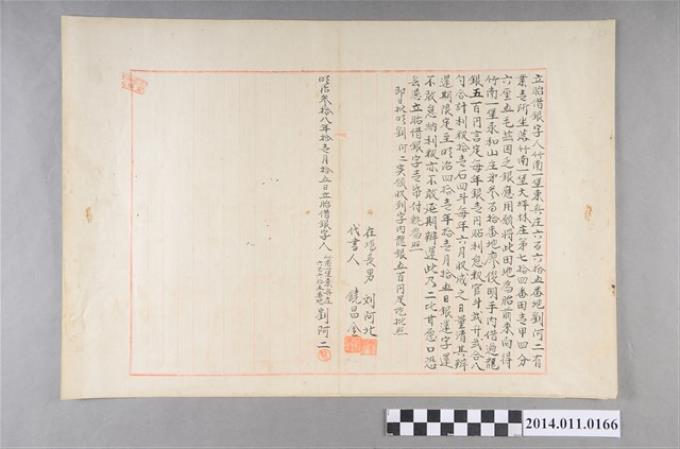 立胎借銀字人竹南一堡東興庄六百六拾五番地劉阿二有
業壹所坐落竹南一堡大坪林庄第七拾四番田壹甲四分
六厘五毛茲因乏銀應用願將此田地為胎前來向得
竹南一堡永和山庄第參百拾番地廖俊明手內借過龍
銀五百円言定每年銀壹円貼利息穀官斗弍升弍合八
勺合計利穀拾壹石四斗每年六月收成之日量清其辦
還期限定至明治四拾壹年拾壹月拾五日銀還字還
不敢怠納利穀亦不敢延期辦還此乃二比甘愿口恐
無憑立胎借銀字壹帋付執為照
即日批明劉阿二實領收到字內龍銀五百円足訖批照
在場長男 劉阿北
代書人 饒昌金
明治參拾八年拾壹月拾五日立胎借銀字人 竹南一堡東興庄
六百六拾五番地 劉阿二
2014.011.0166